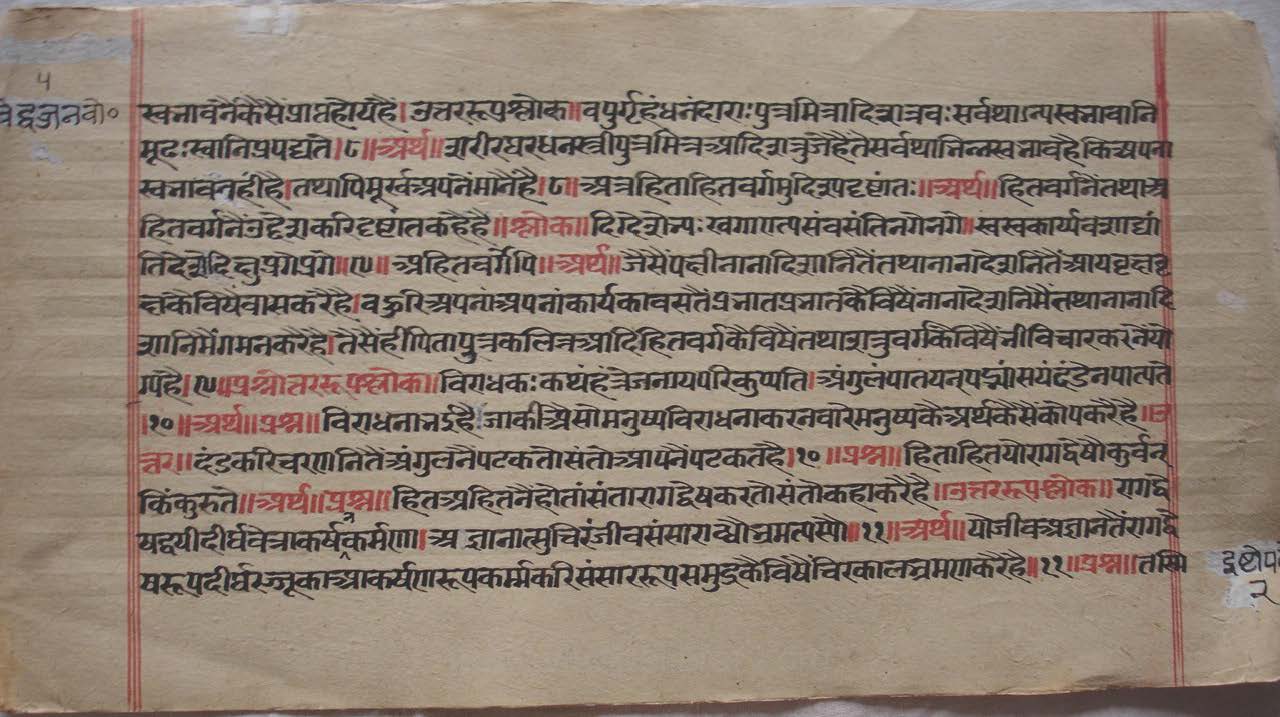 ५
स्वभावनैंकैसैंप्राप्तहोयहैं। उत्तररूपश्लोक॥ वपुर्गृहंधनंदाराः पुत्रमित्रादिशत्रवः सर्वथाऽन्यस्वभावानि
मूढःस्वानिप्रपद्यते। ८॥ अर्थ॥ शरीरघरधनस्त्रीपुत्रमित्रआदिशत्रुजेहैतेसर्वथाभिन्नस्वभावहैकिअपना
स्वभावनहींहै। तथापिमूर्खअपनेंमांनैहै। ८॥ अत्रहिताहितवर्गमुदिश्पदृष्टांतः॥ अर्थ॥ हितवर्गनैंतथाअ
हितवर्गनैंउद्देशकरिदृष्टांतकहैहै॥ श्लोक॥ दिग्देशेभ्यः खगाएत्यसंवसंतिनगेनगे॥ स्वस्वकार्यवशाद्यां
तिदेशेदिक्षुप्रगेप्रगे॥ ९॥ अहितवर्गेपि॥ अर्थ॥ जैसैंपक्षीनानादिशानितैंतथानानादेशनितैंआयवृक्षवृ
क्षकैविषैंवासकरैहै। बहुरिअपनांअपनांकार्यकावसतैंप्रभातप्रभातकैविषैंनानादेशनिमैंतथानानादि
शानिमैंगमनकरैंहै। तैसैंहीपितापुत्रकलित्रआदिहितवर्गकैविषैंतथाशत्रुवर्गकैविषैंभीविचारकरनेयो
ग्यहै। ९॥ प्रश्नोत्तररूपश्लोक॥ विराधकः कथंहंत्रेजनायपरिकुप्यति। त्र्यंगुलंपातयनपद्भ्यांसयंदंडेनपात्यते
। १०॥ अर्थ॥ प्रश्न॥ विराधनाभईहै जाकीऐसोमनुष्यविराधनाकरनवारेमनुष्यकैअर्थकैसैंकोपकरैहै॥ उ
त्तर॥ दंडकरिचरणनितैंत्र्यंगुलनैपटकतोसंतोआपनैंपटकतहै। १०॥ प्रश्न॥ हिताहितयोरागद्वेषौकुर्वन्
किंकुरुते॥ अर्थ॥ प्रश्न॥ हितअहितनैंहोतांसंतारागद्वेषकरतोसंतोकहाकरैहै॥ उत्तररूपश्लोक॥ रागद्वे
षद्वयीदीर्घनेत्राकर्षकर्मणा। अज्ञानात्सुचिरंजीवसंसाराब्धौभ्रमत्यसौ॥ ११॥ अर्थ॥ योजीवअज्ञानतैंरागद्वे
षरूपदीर्घरज्जूकाआकर्षणरूपकर्म्मकरिसंसाररूपसमुद्रकैविषैंचिरकालभ्रमणकरैंहै॥ ११॥ प्रश्न॥ तस्मि
२